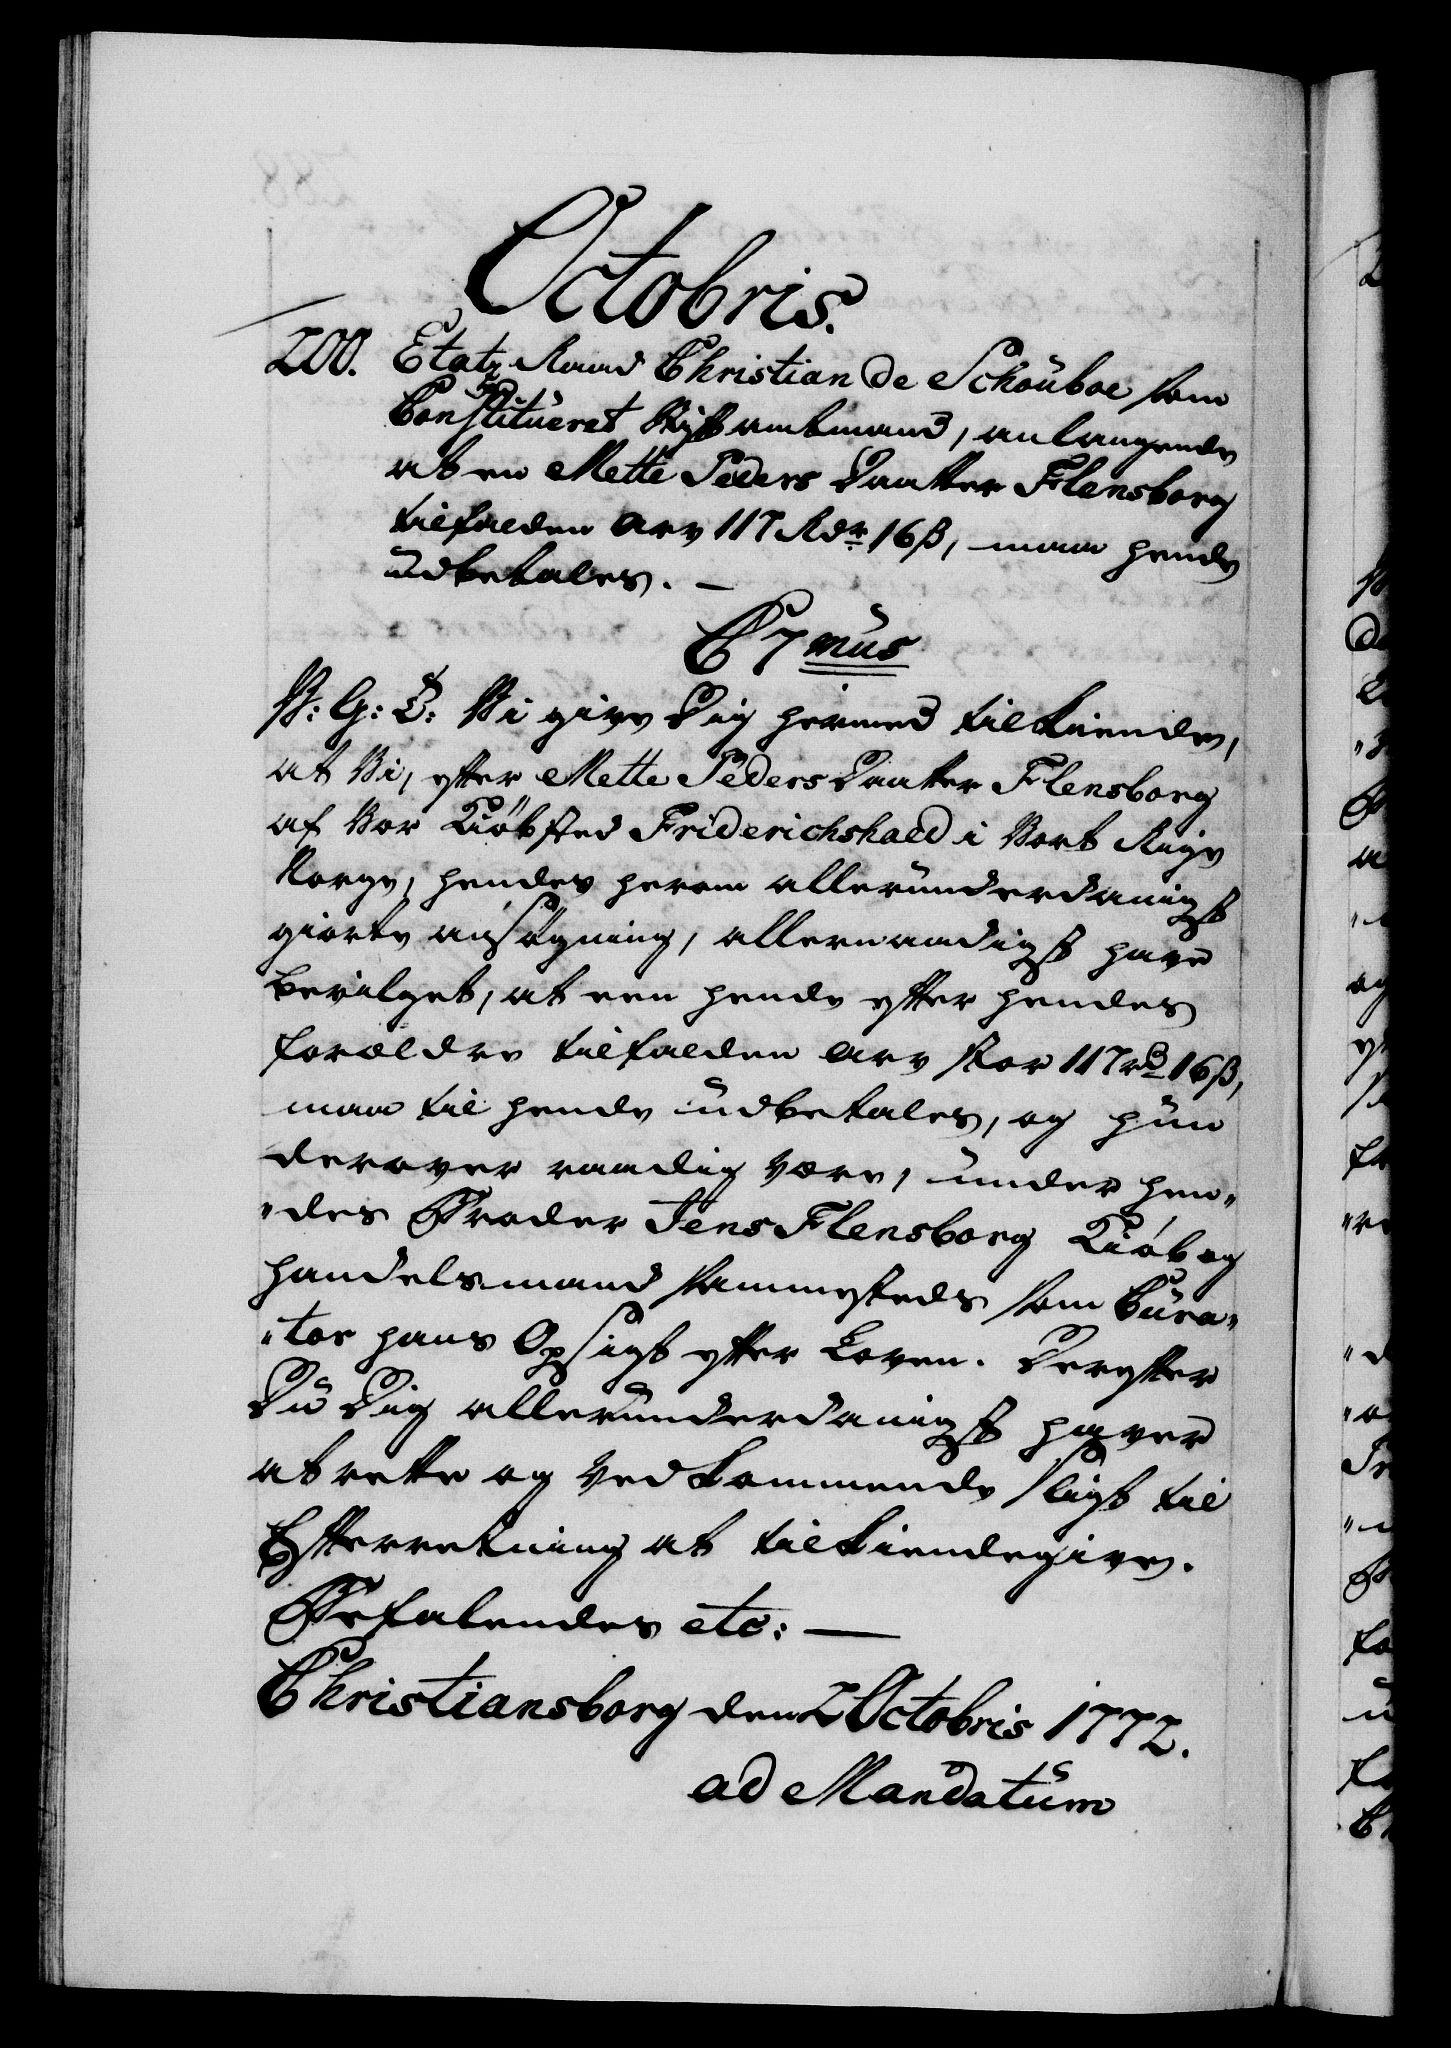 Octobris.
200. Etatz Raad Christian de Schouboe som
Constitueret Stiftamtmand, anlangende
at en Mette Peders Daatter Flensborg
tilfalden Arv 117 Rdr 16 ß, maa hende
udbetales. —
C 7 mus
P: G: T: Vi give Dig hermed tilkiende,
at Vi, efter Mette Peders Daatter Flensborg
af Vor Kiöbsted Friderichshald i Vort Rige
Norge, hendes herom allerunderdanigst
giorte ansøgning, allernaadigst have
bevilget, at een hende efter hendes
forældre tilfalden Arv stor 117 rd 16 ß,
maa til hende udbetales, og hun
derover raadig være, under hen„
„des Broder Jens Flensborg Kiøb og
handelsmand sammesteds som Cura„
„tor hans Opsigt efter Loven. Derefter
Du Dig allerunderdanigst haver
at rette og Vedkommende sligt til
Efterretning at tilkiendegive.
Befalendes etc: —
Christiansborg den 2 Octobris 1772.
ad Mandatum